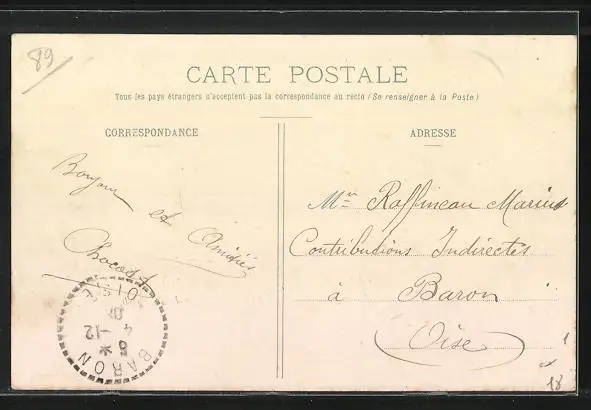 89
CARTE POSTALE
Tous les pays étrangers n'acceptent pas la correspondance au recto (Se renseigner à la Poste)
CORRESPONDANCE
ADRESSE
Bonjour et Amitiés
Mr Raffineau Marius
Contributions Indirectes
à Baron
Oise
BARON
OISE
4 -12
18